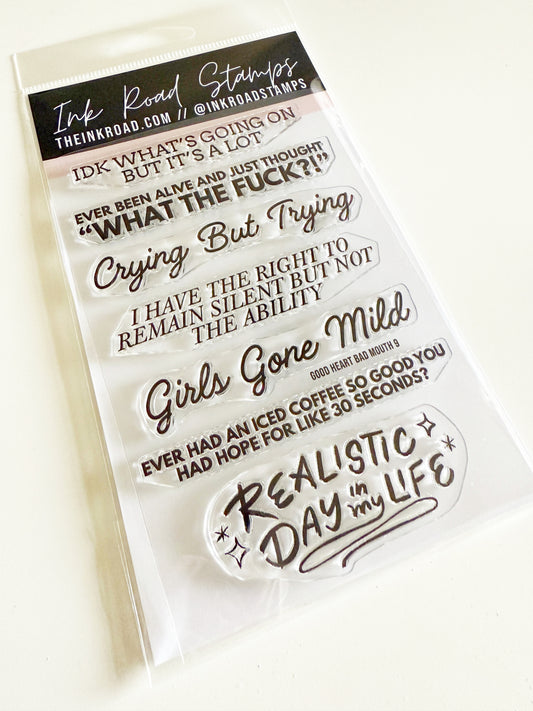 Ink Road Stamps
THEINKROAD.COM // @INKROADSTAMPS
IDK WHAT'S GOING ON
BUT IT'S A LOT
EVER BEEN ALIVE AND JUST THOUGHT
“WHAT THE FUCK?!”
Crying But Trying
I HAVE THE RIGHT TO
REMAIN SILENT BUT NOT
THE ABILITY
Girls Gone Mild
GOOD HEART BAD MOUTH 9
EVER HAD AN ICED COFFEE SO GOOD YOU
HAD HOPE FOR LIKE 30 SECONDS?
REALISTIC
DAY in my LIFE